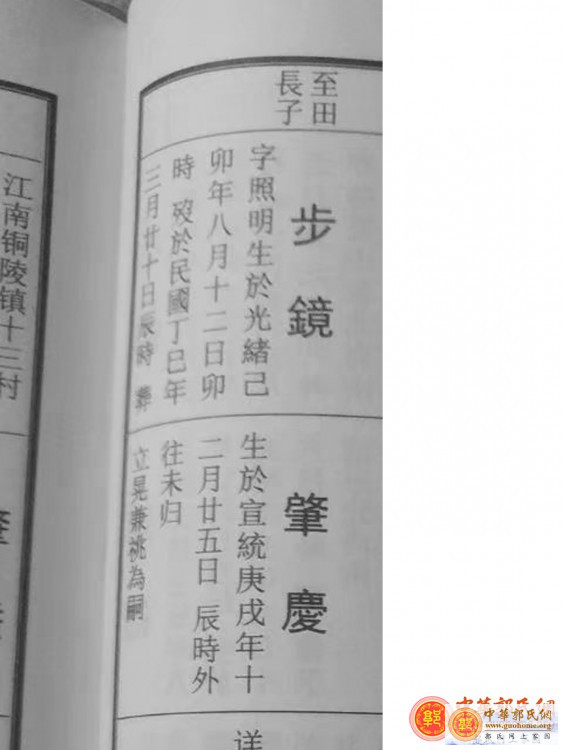 至田
長子
步鏡
字照明生於光緒己
卯年八月十二日卯
時 歿於民國丁巳年
三月廿十日辰時 葬
肇慶
生於宣統庚戌年十
二月廿五日 辰時外
往未归
立晃兼祧為嗣
详
江南铜陵镇十三村
中華郭氏網
www.guoshi.com
郭氏网上家园